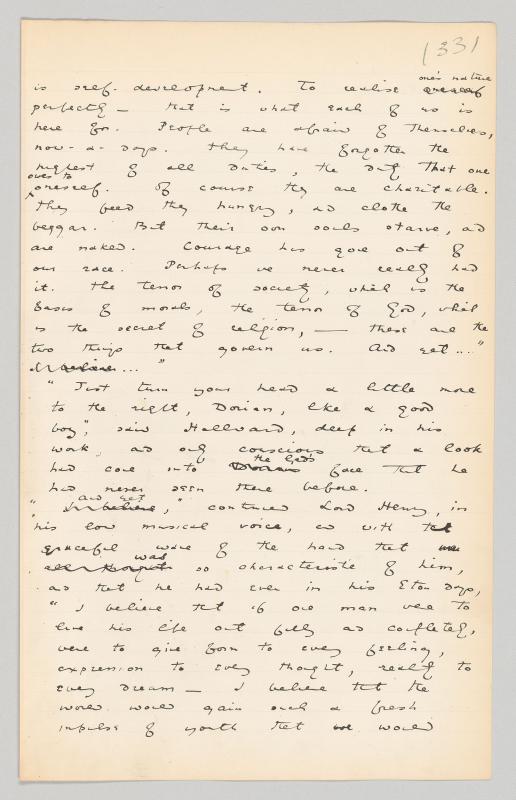 (33)
is self-development. To realise one's nature
perfectly — that is what each of us is
here for. People are afraid of themselves,
now-a-days. They have forgotten the
highest of all duties, the duty that one
owes to oneself. Of course they are charitable.
They feed they hungry, and clothe the
beggar. But their own souls starve, and
are naked. Courage has gone out of
our race. Perhaps we never really had
it. The terror of society, which is the
basis of morals, the terror of God, which
is the secret of religion, — these are the
two things that govern us. And yet ...."
"Just turn your head a little more
to the right, Dorian, like a good
boy", said Hallward, deep in his
work, and only conscious that a look
had come into the lad's face that he
had never seen there before.
"and yet," continued Lord Henry, in
his low musical voice, and with that
graceful wave of the hand that
was so characteristic of him,
and that he had even in his Eton days,
"I believe that if one man were to
live his life out fully and completely,
were to give form to every feeling,
expression to every thought, reality to
every dream — I believe that the
world would gain such a fresh
impulse of youth that we would